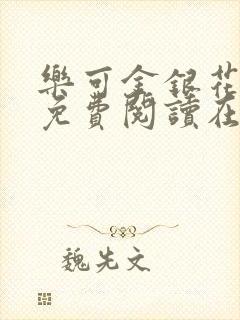 樂可金銀花
免費閱讀在
魏先文